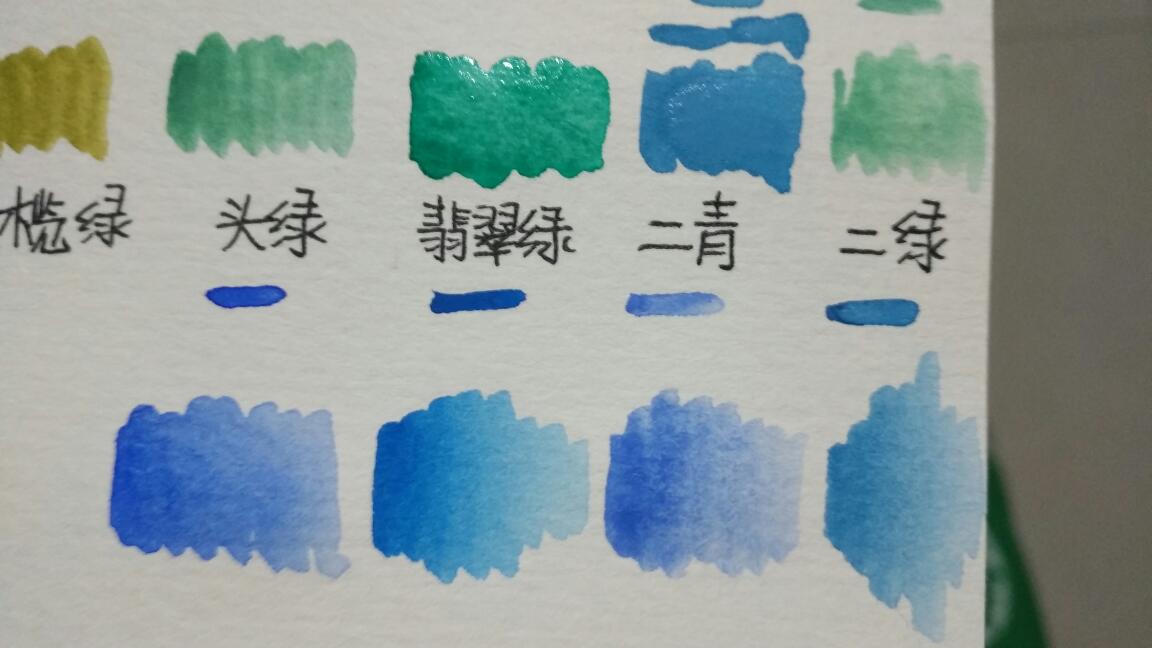 榄绿 头绿 翡翠绿 二青 二绿